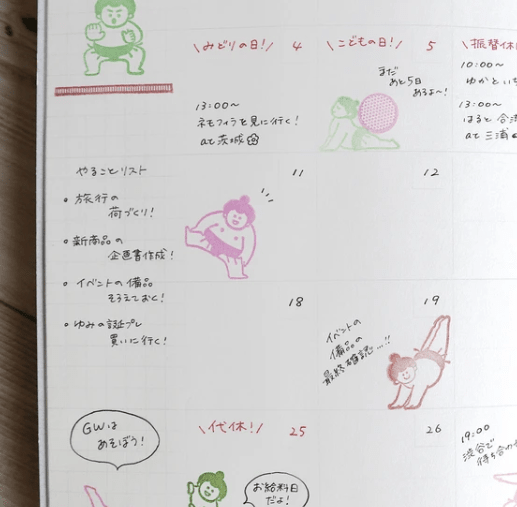 \みどりの日!/ 4
13:00〜
ネモフィラを見に行く!
at 茨城
\こどもの日!/ 5
まだ
あと5日
あるよ〜!
\振替休
10:00〜
ゆかといち
13:00〜
はると合流
at 三浦
やることリスト
• 旅行の
荷づくり!
• 新商品の
企画書作成!
• イベントの備品
そろえておく!
• ゆみの誕プレ
買いに行く!
11
12
18
19
イベントの
備品の
最終確認…!!
GWは
あそぼう!
\代休!/ 25
お給料日
だよ!
26
19:00
渋谷で
待ち合わ